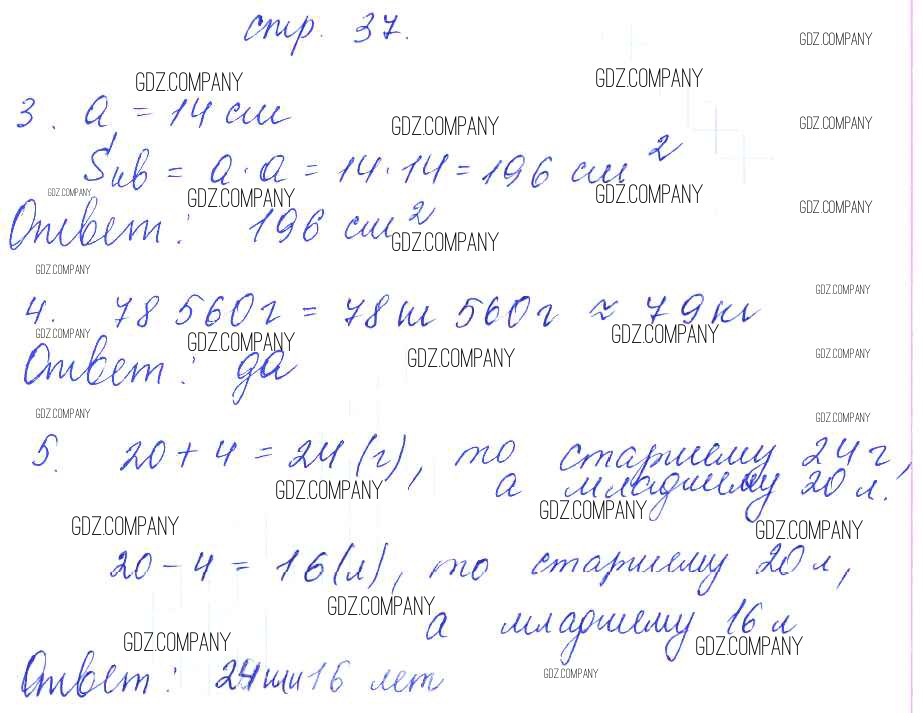 стр. 37.
GDZ.COMPANY
GDZ.COMPANY GDZ.COMPANY
3. a = 14 см
GDZ.COMPANY GDZ.COMPANY
Sкв = a · a = 14 · 14 = 196 см²
GDZ.COMPANY GDZ.COMPANY GDZ.COMPANY
GDZ.COMPANY
Ответ: 196 см²
GDZ.COMPANY
GDZ.COMPANY
GDZ.COMPANY
4. 78 560г = 78кг 560г ≈ 79кг
GDZ.COMPANY GDZ.COMPANY GDZ.COMPANY
GDZ.COMPANY GDZ.COMPANY
Ответ: да
GDZ.COMPANY GDZ.COMPANY
5. 20 + 4 = 24 (г), то старшему 24 г,
а младшему 20 л.
GDZ.COMPANY GDZ.COMPANY
GDZ.COMPANY GDZ.COMPANY
20 - 4 = 16 (л), то старшему 20 л,
GDZ.COMPANY
а младшему 16 л
GDZ.COMPANY GDZ.COMPANY
Ответ: 24 или 16 лет
GDZ.COMPANY